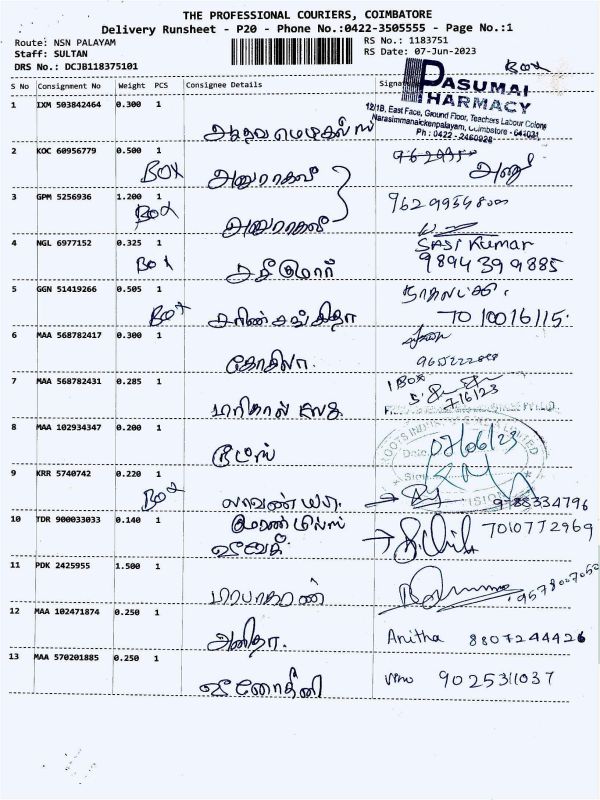 THE PROFESSIONAL COURIERS, COIMBATORE
Delivery Runsheet - P20 - Phone No.:0422-3505555 - Page No.:1
Route: NSN PALAYAM RS No.: 1183751
Staff: SULTAN RS Date: 07-Jun-2023
DRS No.: DCJB118375101
BOX
S No Consignment No Weight PCS Consignee Details
PASUMAI
PHARMACY
12/1B, East Face, Ground Floor, Teachers Labour Colony
Narasimmanaickenpalayam, Coimbatore - 641031
Ph : 0422 - 2460928
1 IXM 503842464 0.300 1
2 KOC 60956779 0.500 1
BOX அனுராகவி
3 GPM 5256936 1.200 1
BOX அனுராகவி
4 NGL 6977152 0.325 1 SASI Kumar
BOX சசிகுமார் 9894399885
5 GGN 51419266 0.505 1
BOX 7010016115
6 MAA 568782417 0.300 1
கோகிலா.
7 MAA 568782431 0.285 1 1 BOX
7/6/23
8 MAA 102934347 0.200 1
ரூட்ஸ் 07/06/23
9 KRR 5740742 0.220 1
BOX லாவண்யா. 9788334796
10 TDR 900033033 0.140 1 7010772969
11 PDK 2425955 1.500 1
பிரபாகரன் 9578007050
12 MAA 102471874 0.250 1
அனிதா. Anitha 8807244426
13 MAA 570201885 0.250 1
வினோதினி Vino 9025311037